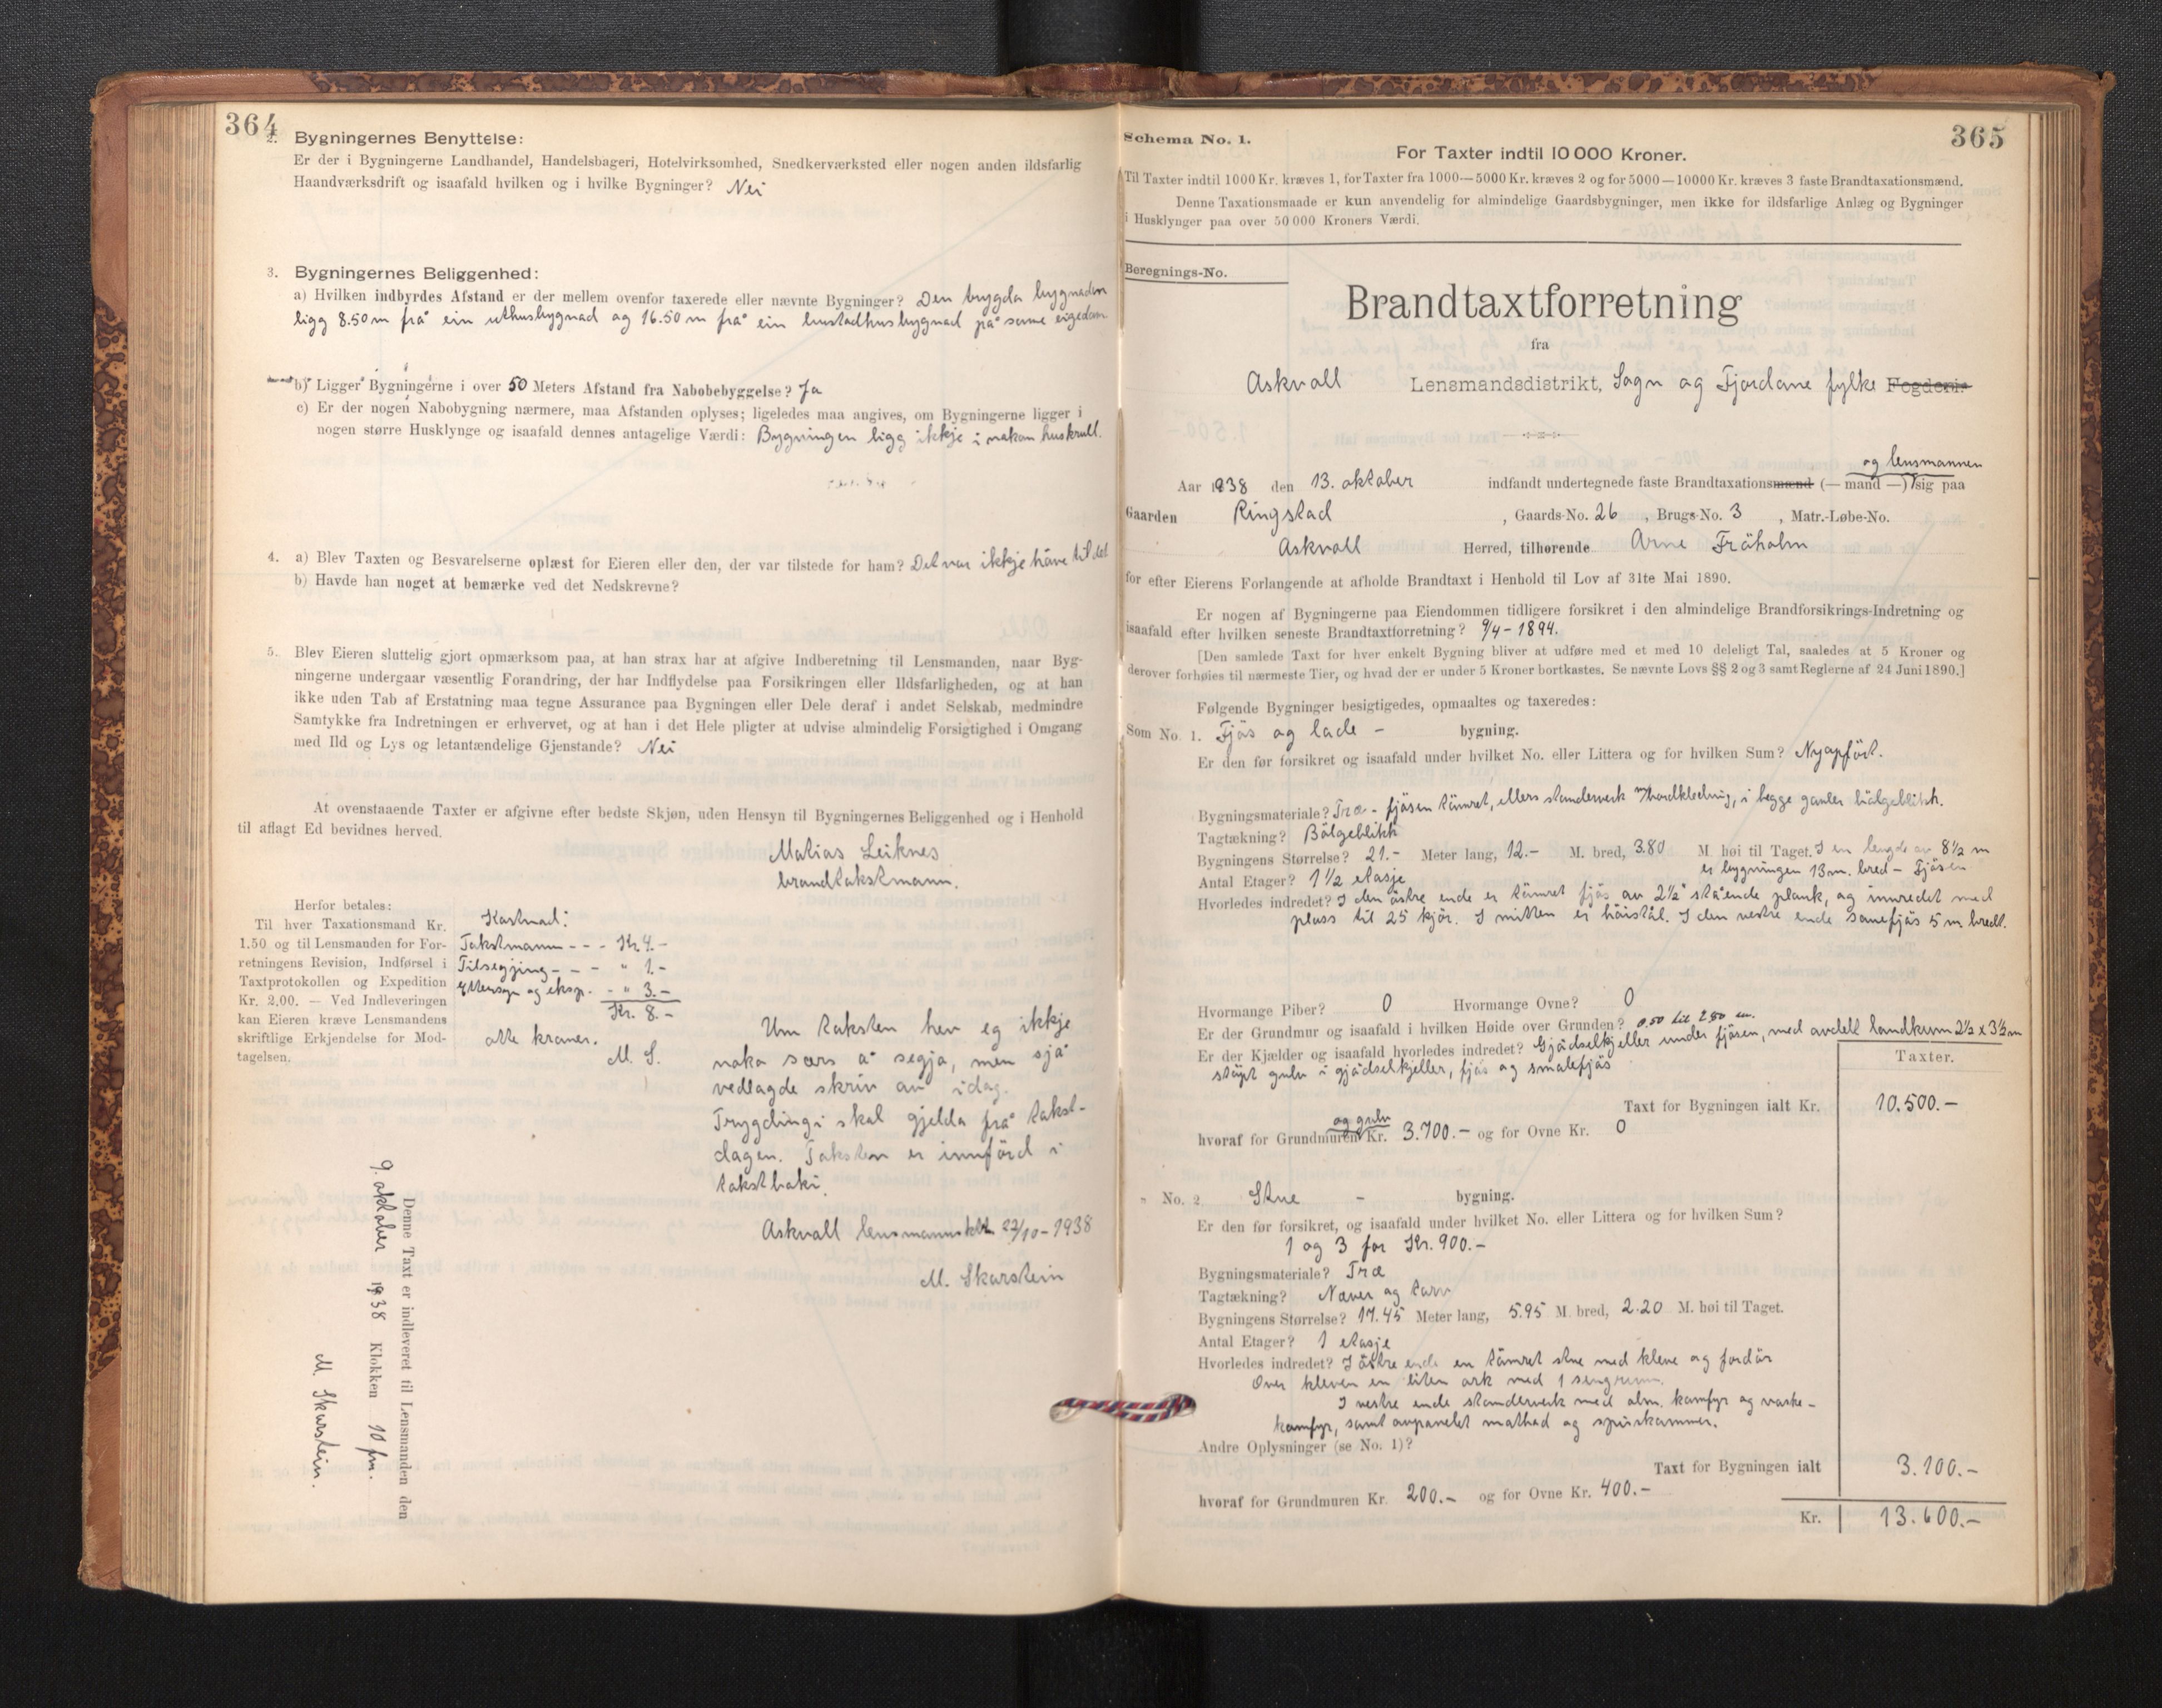 364
2. Bygningernes Benyttelse:
Er der i Bygningerne Landhandel, Handelsbageri, Hotelvirksomhed, Snedkerværksted eller nogen anden ildsfarlig
Haandværksdrift og isaafald hvilken og i hvilke Bygninger? Nei
3. Bygningernes Beliggenhed:
a) Hvilken indbyrdes Afstand er der mellem ovenfor taxerede eller nævnte Bygninger? Den brygda bygnaden
ligg 8.50 m frå ein uthusbygnad og 16.50 m frå ein bustadhusbygnad på same eigedom
b) Ligger Bygningerne i over 50 Meters Afstand fra Nabobebyggelse? Ja
c) Er der nogen Nabobygning nærmere, maa Afstanden oplyses; ligeledes maa angives, om Bygningerne ligger i
nogen større Husklynge og isaafald dennes antagelige Værdi: Bygningen ligg ikkje i nokon huskrull.
4. a) Blev Taxten og Besvarelserne oplæst for Eieren eller den, der var tilstede for ham? Det var ikkje høve til det
b) Havde han noget at bemærke ved det Nedskrevne?
5. Blev Eieren sluttelig gjort opmærksom paa, at han strax har at afgive Indberetning til Lensmanden, naar Byg-
ningerne undergaar væsentlig Forandring, der har Indflydelse paa Forsikringen eller Ildsfarligheden, og at han
ikke uden Tab af Erstatning maa tegne Assurance paa Bygningen eller Dele deraf i andet Selskab, medmindre
Samtykke fra Indretningen er erhvervet, og at han i det Hele pligter at udvise almindelig Forsigtighed i Omgang
med Ild og Lys og letantændelige Gjenstande? Nei
At ovenstaaende Taxter er afgivne efter bedste Skjøn, uden Hensyn til Bygningernes Beliggenhed og i Henhold
til aflagt Ed bevidnes herved.
Matias Leiknes
brandtakstmann.
Herfor betales:
Til hver Taxationsmand Kr.
1.50 og til Lensmanden for For-
retningens Revision, Indførsel i
Taxtprotokollen og Expedition
Kr. 2.00. — Ved Indleveringen
kan Eieren kræve Lensmandens
skriftlige Erkjendelse for Mod-
tagelsen.
Kostnad:
Takstmann - - - Kr. 4.-
Tilsegjing - - - " 1.-
Ettersyn og eksp. - " 3.-
Kr. 8.-
otte kroner.
M. S.
Um taksten hev eg ikkje
noko særs å segja, men sjå
vedlagde skriv av idag.
Trygdingi skal gjelda frå takst-
dagen. Taksten er innförd i
takstboki.
Askvoll lensmannsktr. 22/10-1938
M. Skarstein
Denne Taxt er indleveret til Lensmanden den
9. oktober 1938 Klokken 10 fm.
M. Skarstein.
365
Schema No. 1.
For Taxter indtil 10 000 Kroner.
Til Taxter indtil 1000 Kr. kræves 1, for Taxter fra 1000—5000 Kr. kræves 2 og for 5000—10000 Kr. kræves 3 faste Brandtaxationsmænd.
Denne Taxationsmaade er kun anvendelig for almindelige Gaardsbygninger, men ikke for ildsfarlige Anlæg og Bygninger
i Husklynger paa over 50 000 Kroners Værdi.
Beregnings-No.
Brandtaxtforretning
fra
Askvoll Lensmandsdistrikt, Sogn og Fjordane fylke Fogderi.
og lensmannen
Aar 1938 den 13. oktober indfandt undertegnede faste Brandtaxationsmænd (— mand —) sig paa
Gaarden Ringstad, Gaards-No. 26, Brugs-No. 3, Matr.-Løbe-No.
Askvoll Herred, tilhørende Arne Fråholm
for efter Eierens Forlangende at afholde Brandtaxt i Henhold til Lov af 31te Mai 1890.
Er nogen af Bygningerne paa Eiendommen tidligere forsikret i den almindelige Brandforsikrings-Indretning og
isaafald efter hvilken seneste Brandtaxtforretning? 9/4-1894.
[Den samlede Taxt for hver enkelt Bygning bliver at udføre med et med 10 deleligt Tal, saaledes at 5 Kroner og
derover forhøies til nærmeste Tier, og hvad der er under 5 Kroner bortkastes. Se nævnte Lovs §§ 2 og 3 samt Reglerne af 24 Juni 1890.]
Følgende Bygninger besigtigedes, opmaaltes og taxeredes:
Som No. 1. Fjös og lade - bygning.
Er den før forsikret og isaafald under hvilket No. eller Littera og for hvilken Sum? Nyoppfört.
Bygningsmateriale? Træ - fjösen tömret, ellers standerverk m/bordkledning, i begge gavler bölgeblikk.
Tagtækning? Bölgeblikk
Bygningens Størrelse? 21.- Meter lang, 12.- M. bred, 3.80 M. høi til Taget. I en lengde av 8½ m
er bygningen 13 m. bred - Fjösen
Antal Etager? 1½ etasje
Hvorledes indredet? I den östre ende er tömret fjös av 2½" stående plank, og innredet med
plass til 25 kjör. I mitten er höistål. I den vestre ende sauefjös 5 m bredt.
Hvormange Piber? 0 Hvormange Ovne? 0
Er der Grundmur og isaafald i hvilken Høide over Grunden? 0.50 til 2.50 m.
Er der Kjælder og isaafald hvorledes indredet? Gjödselkjeller under fjösen, med avdelt landkum 2½ x 3½ m
stöypt gulv i gjödselkjeller, fjös og smalefjös
Taxter.
Taxt for Bygningen ialt Kr. 10.500.-
og gulv
hvoraf for Grundmuren Kr. 3.700.- og for Ovne Kr. 0
" No. 2 Stue - bygning.
Er den før forsikret, og isaafald under hvilket No. eller Littera og for hvilken Sum?
1 og 3 for Kr. 900.-
Bygningsmateriale? Træ
Tagtækning? Næver og torv
Bygningens Størrelse? 17.45 Meter lang, 5.95 M. bred, 2.20 M. høi til Taget.
Antal Etager? 1 etasje
Hvorledes indredet? I östre ende en tömret stue med kleve og fordör
Over kleven en liten ark med 1 sengrum.
I vestre ende standerverk med alm. komfyr og vaske-
komfyr, samt avpanelet matbod og spiskammer.
Andre Oplysninger (se No. 1)?
Taxt for Bygningen ialt 3.100.-
hvoraf for Grundmuren Kr. 200.- og for Ovne Kr. 400.-
Kr. 13.600.-